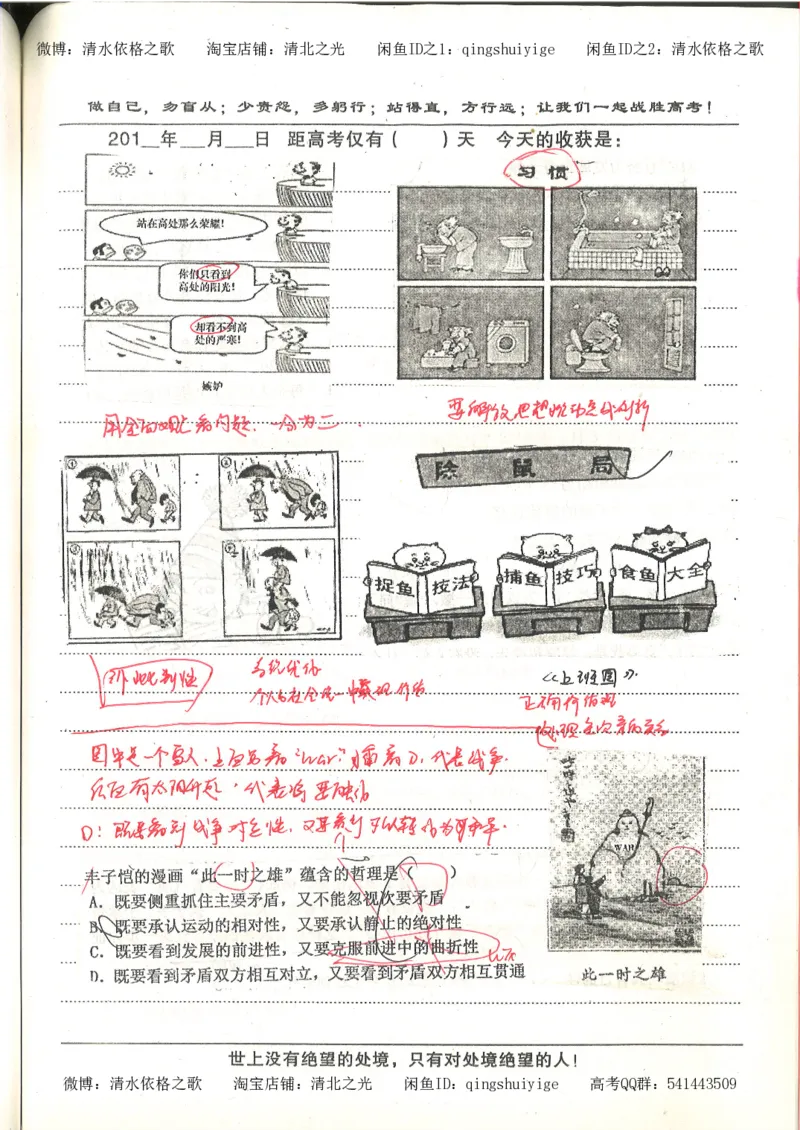 微博：清水依格之歌 淘宝店铺：清北之光 闲鱼ID之1：qingshuiyige 闲鱼ID之2：清水依格之歌
做自己，勿盲从；少责怨，多躬行；站得直，方行远；让我们一起战胜高考！
201__年___月___日 距高考仅有（ ）天 今天的收获是：
习惯
站在高处那么荣耀！
你们只看到
高处的阳光！
却看不到高
处的严寒！
嫉妒
用全面观点看问题，一分为二
要解放思想
除鼠局
① ②
③
捉鱼 技法
捕鱼 技巧
食鱼 大全
《上班图》
系统优化
图中是一个雪人，上面写着"war"，插着刀，代表战争.
后面有太阳升起，代表将要融化
D：既要看到战争对立性，又要看到可以转化为
WAR
丰子恺的漫画“此一时之雄”蕴含的哲理是（ ）
A．既要侧重抓住主要矛盾，又不能忽视次要矛盾
B．既要承认运动的相对性，又要承认静止的绝对性
C．既要看到发展的前进性，又要克服前进中的曲折性
D．既要看到矛盾双方相互对立，又要看到矛盾双方相互贯通
此一时之雄
世上没有绝望的处境，只有对处境绝望的人！
微博：清水依格之歌 淘宝店铺：清北之光 闲鱼ID：qingshuiyige 高考QQ群：541443509